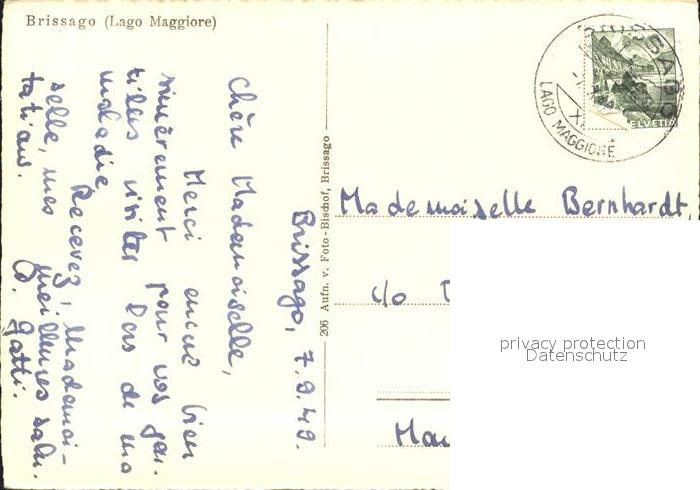 Brissago (Lago Maggiore)
Brissago, 7.9.49.
Chère Mademoiselle,
Merci encore bien
sincèrement pour vos gen-
tilles visites lors de ma
maladie.
Recevez, Mademoi-
selle, mes meilleures salu-
tations.
G. Gatti.
296 Aufn. v. Foto-Bischof, Brissago
BRISSAGO
LAGO MAGGIORE
HELVETIA
Mademoiselle Bernhardt,
c/o
privacy protection
Datenschutz